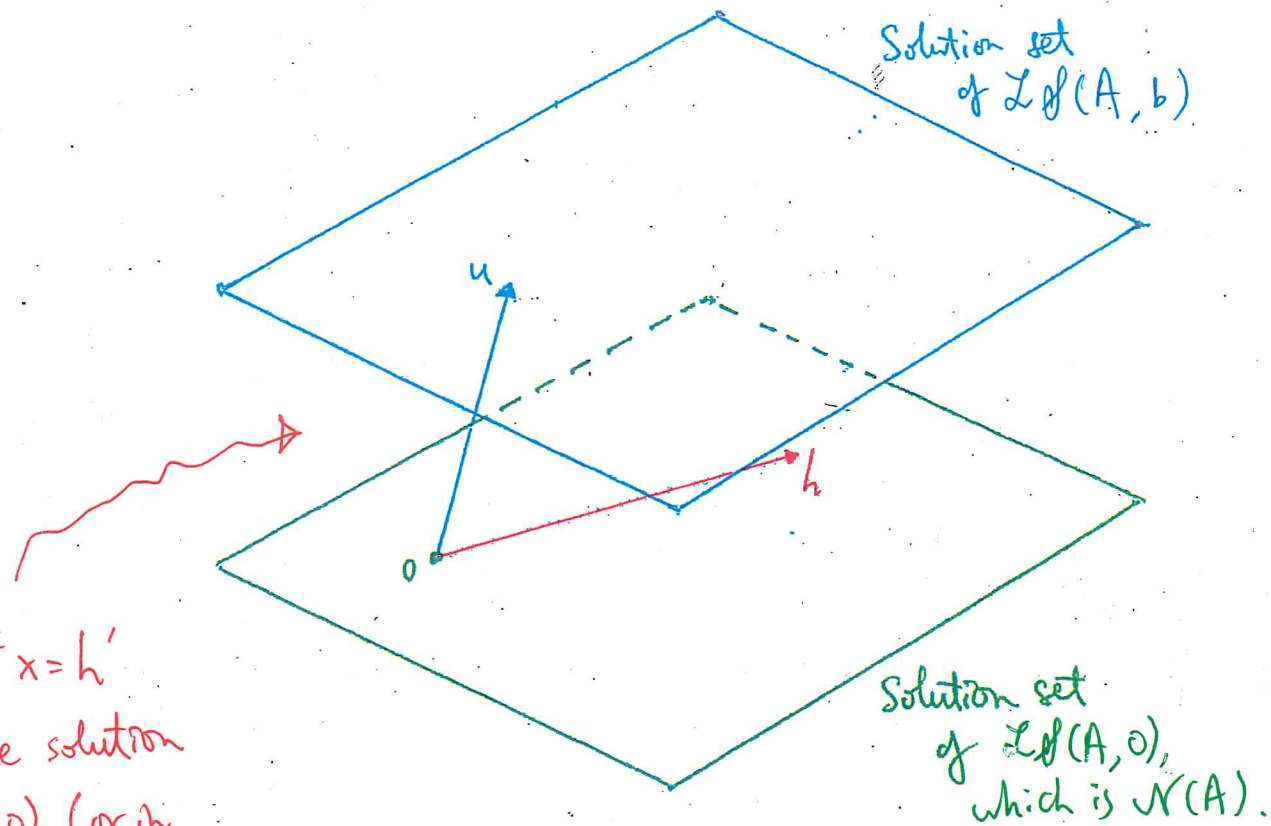 Solution set
of LS(A, b)
u
h
0
x = h'
solution
Solution set
of LS(A, 0),
which is N(A).